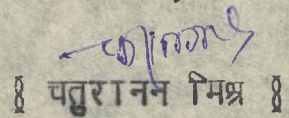 ॥ चतुरानन मिश्र ॥